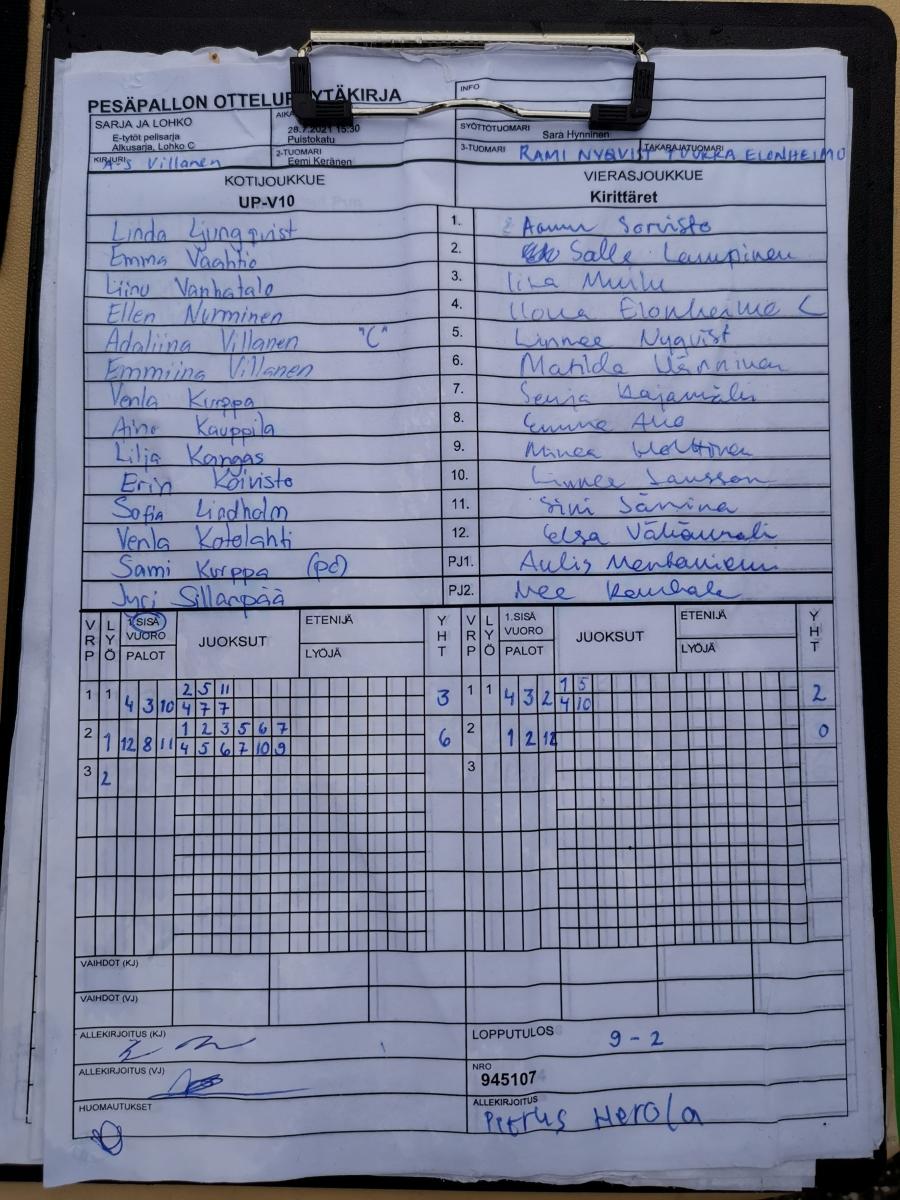 PESÄPALLON OTTELUPÖYTÄKIRJA
INFO
SARJA JA LOHKO
E-tytöt pelisarja
Alkusarja, Lohko C
AIKA
28.7.2021 15:30
Puistokatu
SYÖTTÖTUOMARI
Sara Hynninen
KIRJURI A-S Villanen
2-TUOMARI
Eemi Keränen
3-TUOMARI RAMI NYQVIST
TAKARAJATUOMARI TUUKKA ELONHEIMO
KOTIJOUKKUE
UP-V10
VIERASJOUKKUE
Kirittäret
Linda Ljungqvist 1. Sorvisto
Emma Vaahtio 2. Salle Lampinen
Liinu Vanhatalo 3. Iina
Ellen Nurminen 4. Ilona Elonheimo C
Adaliina Villanen "C" 5. Linnea Nyqvist
Emmiina Villanen 6. Matilda Hänninen
Venla Kurppa 7. Senja
Aino Kauppila 8. Emma
Lilja Kangas 9. Minea
Erin Koivisto 10. Linnea Jansson
Sofia Lindholm 11. Sini
Venla Kotolahti 12. Elsa
Sami Kurppa (pd) PJ1. Aulis
Jyri Sillanpää PJ2.
VRP LYÖ 1.SISÄ VUORO PALOT JUOKSUT ETENIJÄ LYÖJÄ YHT VRP LYÖ 1.SISÄ VUORO PALOT JUOKSUT ETENIJÄ LYÖJÄ YHT
1 1 4 3 10 2 5 11 3 1 1 4 3 2 1 5 2
4 7 7 4 10
2 1 12 8 11 1 2 3 5 6 7 6 2 1 2 12 0
4 5 6 7 10 9
3 2 3
VAIHDOT (KJ)
VAIHDOT (VJ)
ALLEKIRJOITUS (KJ)
LOPPUTULOS 9 - 2
ALLEKIRJOITUS (VJ)
NRO
945107
HUOMAUTUKSET
ALLEKIRJOITUS
Pietrus Herola